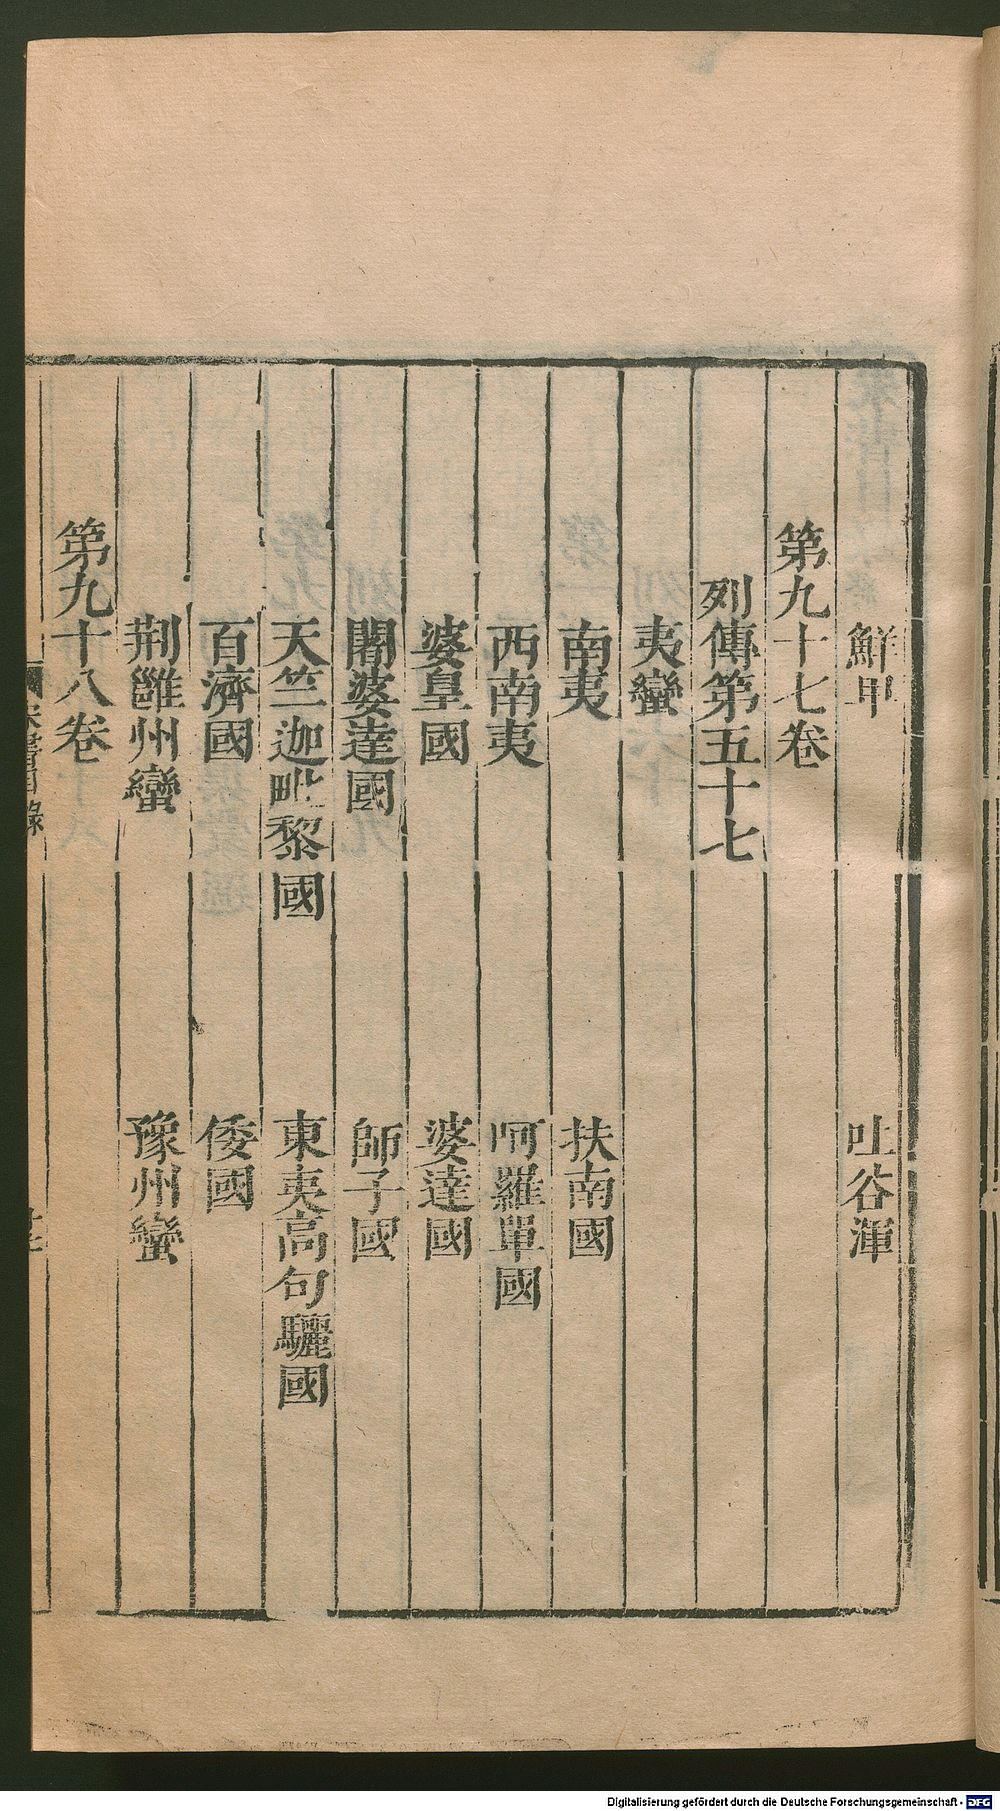 鮮卑 吐谷渾
第九十七卷
列傳第五十七
夷蠻
南夷 扶南國
西南夷 呵羅單國
婆皇國 婆達國
闍婆達國 師子國
天竺迦毗黎國 東夷高句驪國
百濟國 倭國
荆雝州蠻 豫州蠻
第九十八卷
宋書目錄
Digitalisierung gefördert durch die Deutsche Forschungsgemeinschaft - DFG